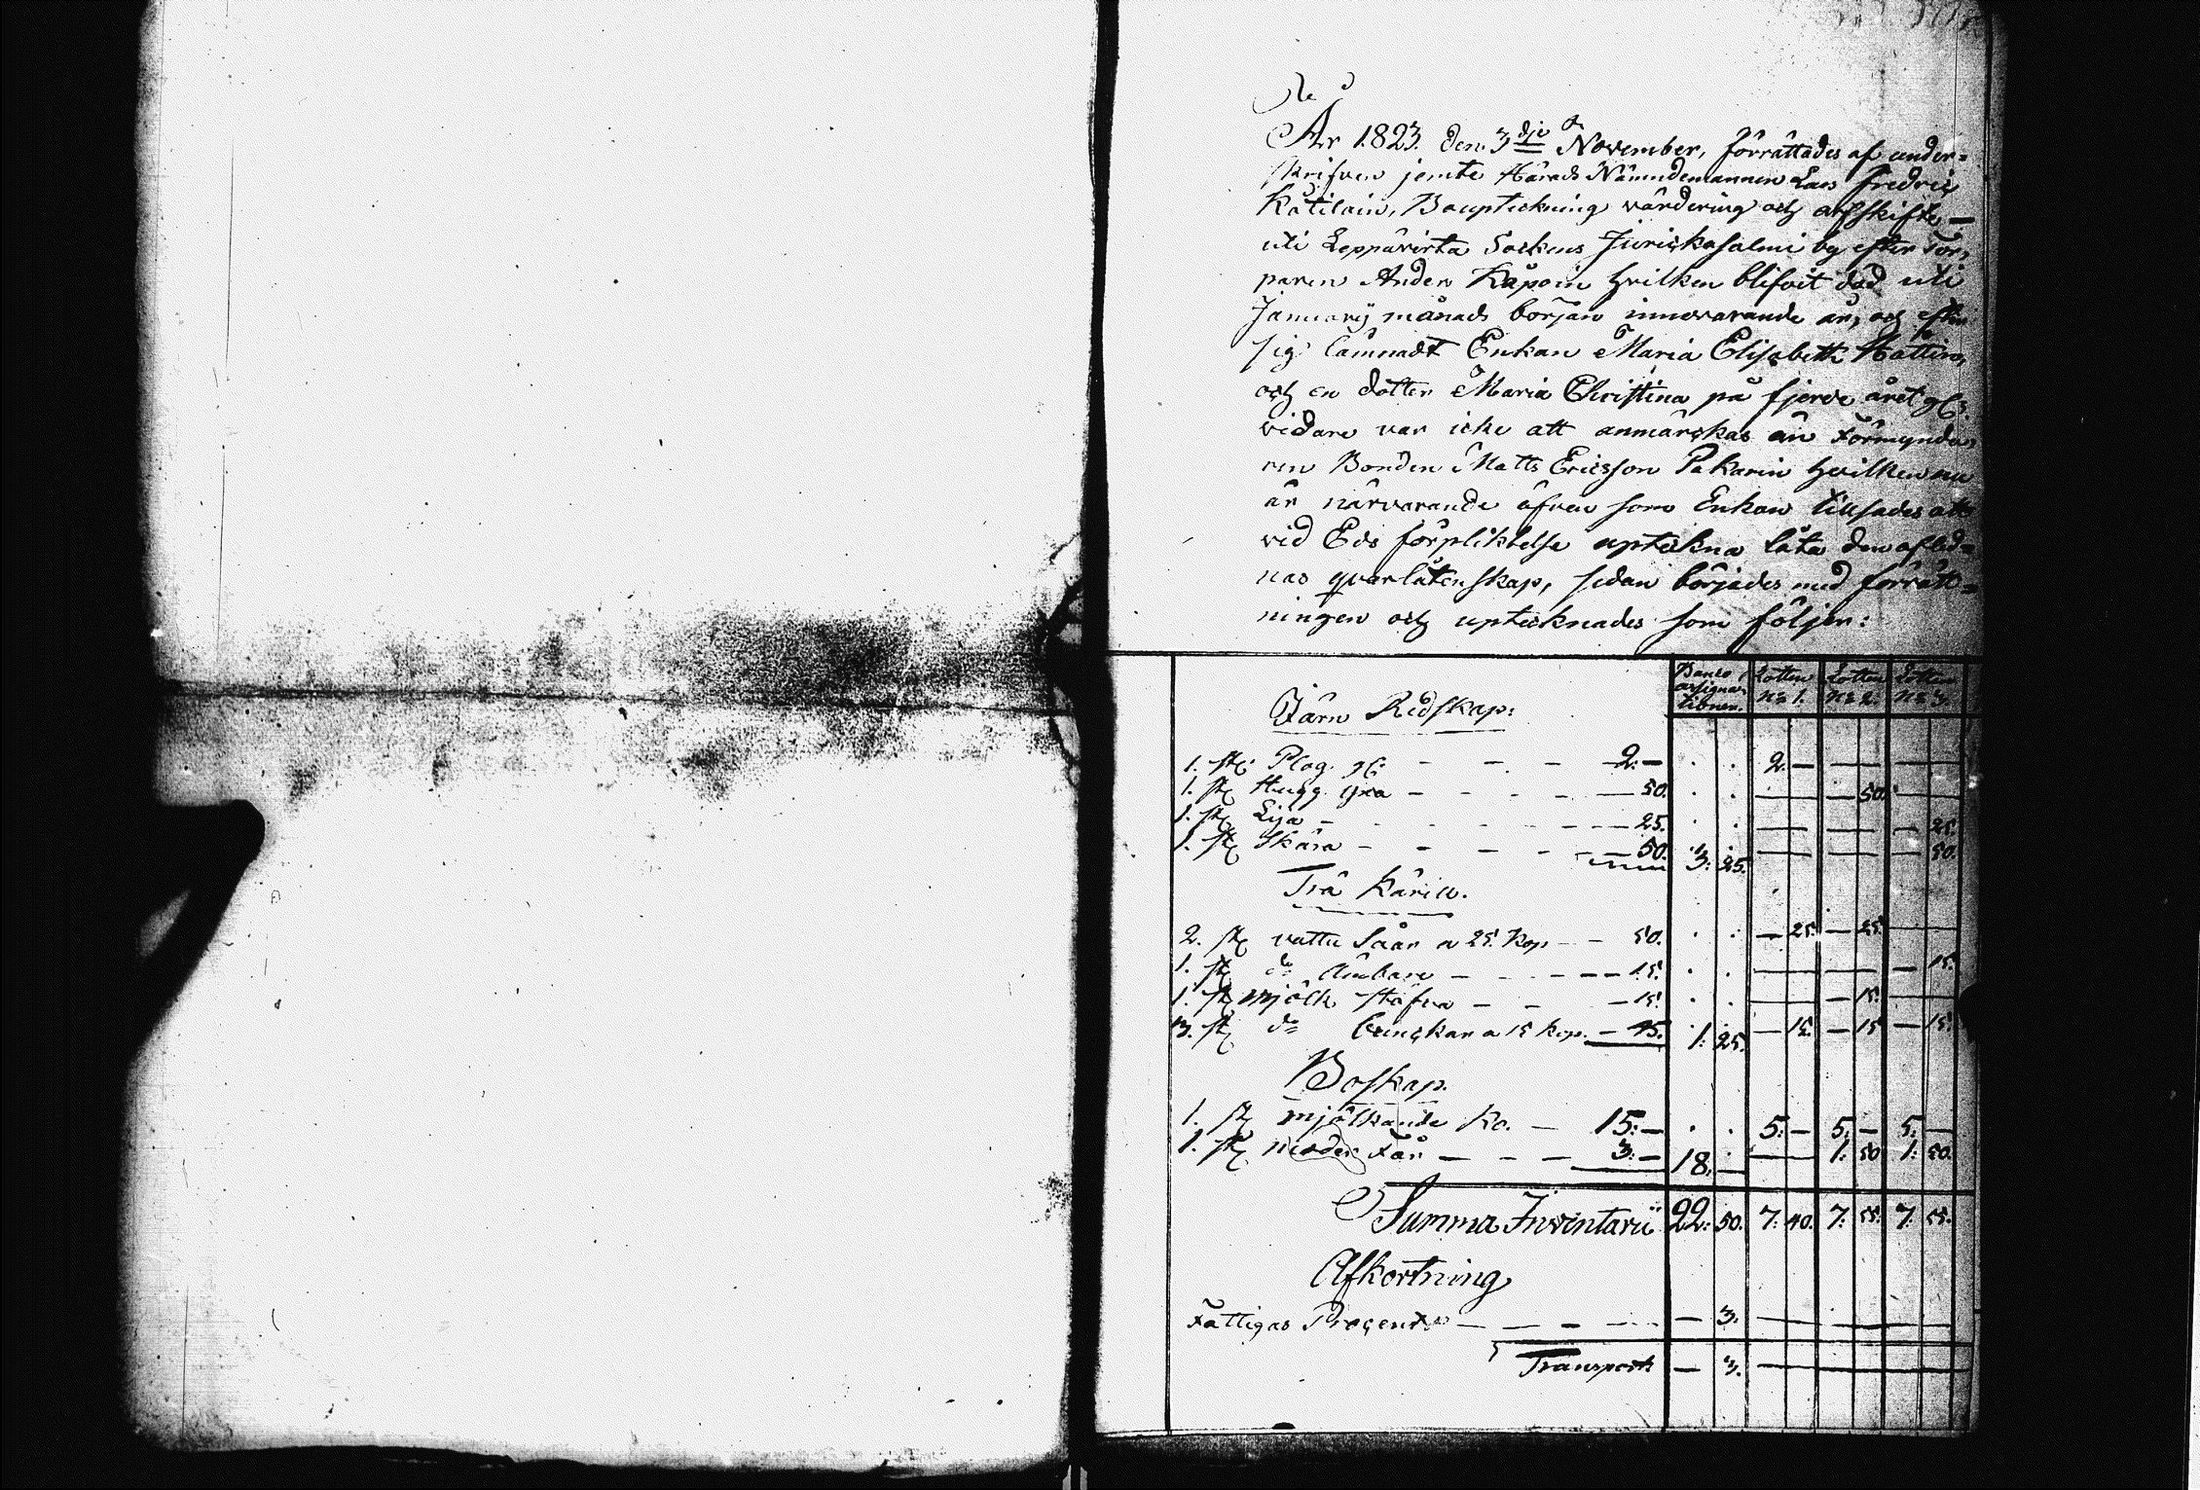 År 1823. den 3dje November, förrättades af under=
skrifven jemte Härads Nämndemannen Lars Fredric
Kåtilain, Bouptekning värdering och arfskifte
uti Leppävirta Sockens Juriçkasalmi by efter Tor-
paren Anders Kåpoin hvilken blifvit död uti
Januarÿ månads början innevarande år, och efter
sig lämnadt Enkan Maria Elisabeth Hattin,
och en dotter Maria Christina på fjerde året gl:
vidare var icke att anmärçkas än Förmynda-
ren Bonden Matts Ericsson Pakarin hvilken nu
är närvarande äfven som Enkan tillsades att
vid Eds förpliktelse uptekna låta den afled=
nas qvarlåtenskap, sedan börjades med förrätt=
ningen och upteknades som följer:
Banco assignationer. Lotten No 1. Lotten No 2. Lotten No 3.
Järn Redskap:
1. stk: Plog gl: 2.— 2.—
1. stk Hugg yxa 50. 50.
1. stk Lija 25. 25.
1. stk Skära 50. 3: 25. 50.
Trä Käril.
2. stk vattu Såar a 25 Kop 50. 25. 25.
1. stk do Ämbare 15. 15.
1. stk mjölk stäfva 15. 15.
3. stk do bunçkar a 15 Kop. 45. 1: 25. 15. 15. 15.
Boskap.
1. stk mjölkande Ko. 15:— 5:— 5:— 5:—
1. stk Får 3:— 18.— 1: 50 1: 50.
Summa Inventarii 22: 50. 7: 40. 7: 55. 7: 55.
Afkortning
Fattigas Proçent 3.
Transport 3.